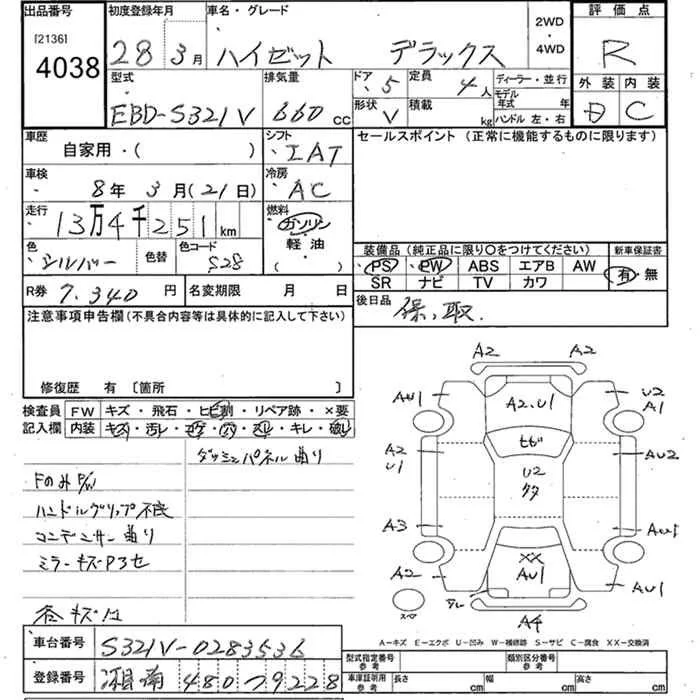 出品番号 初度登録年月 車名・グレード 2WD ・ 4WD 評価点
[2136]
4038 28年 3月 ハイゼット デラックス R
型式 排気量 ドア 定員 ディーラー・並行 外装 内装
EBD-S321V 660cc 5 4人 モデル年式 年 D C
形状 V 積載 kg ハンドル 左・右
車歴 シフト セールスポイント (正常に機能するものに限ります)
自家用・( ) IAT
車検 冷房
8年 3月(21日) AC
走行 燃料
13万4千251km ガソリン
軽油
( )
色 色替 色コード 装備品(純正品に限り○をつけてください) 新車保証書
シルバー S28 PS PW ABS エアB AW 有・無
SR ナビ TV カワ
R券 7,340円 名変期限 月 日 後日品 保、取.
注意事項申告欄(不具合内容等は具体的に記入して下さい)
修復歴 有〔箇所 〕
検査員 FW キズ・飛石・ヒビ割・リペア跡・×要
記入欄 内装 キズ・汚レ・コゲ・穴・ヌレ・キレ・破レ
ダッシュパネル曲り
Fのみ P/W
ハンドルグリップ不良
コンデンサー曲り
ミラーキズPヨセ
各キズ凹
A2 A2
AU1 A2.U1 U2
A1
A2
U1 ヒビ AU2
U2
タタ
A3 AU1
XX
A2 AU1 AU1
A4
A-キズ E-エクボ U-凹み W-補修跡 S-サビ C-腐食 XX-交換済
車台番号 S321V-0283536
型式指定番号 参考 類別区分番号 参考
登録番号 480 79228
車庫証明用 参考 長さ cm 幅 cm 高さ cm